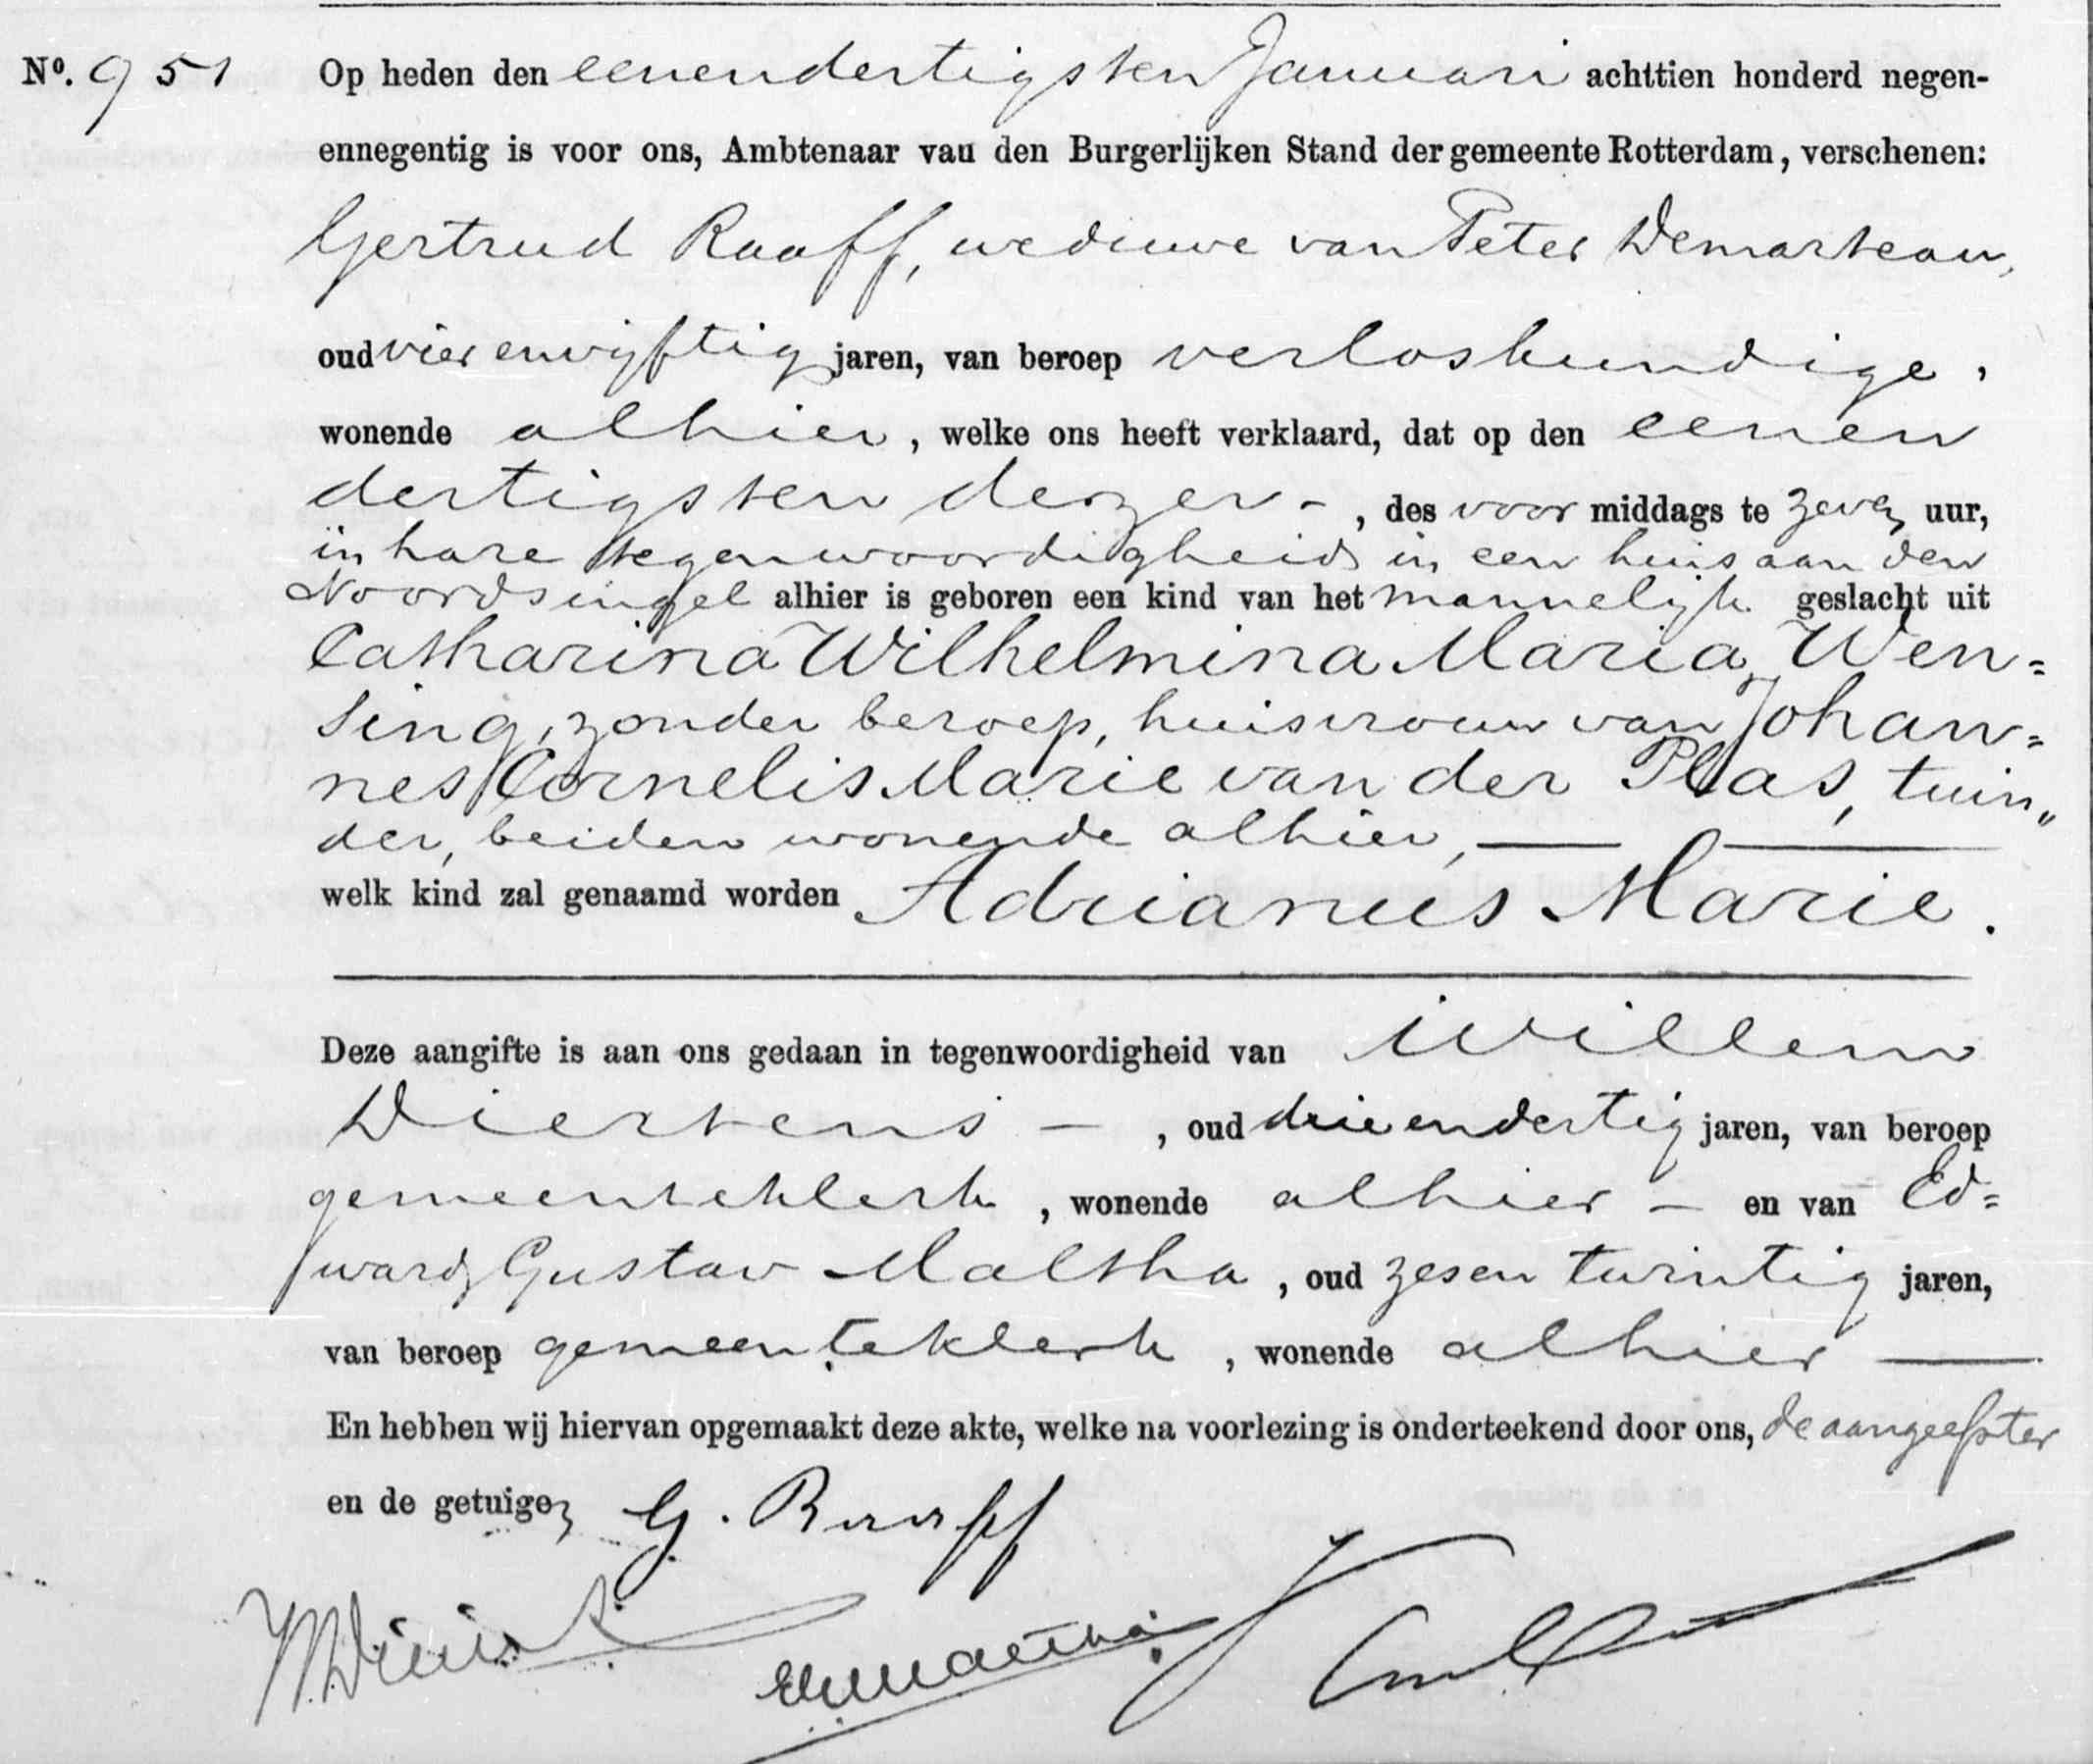 Nº. 951 Op heden den eenendertigsten Januari achttien honderd negen-
ennegentig is voor ons, Ambtenaar van den Burgerlijken Stand der gemeente Rotterdam, verschenen:
Gertrud Raaff, weduwe van Peter Demarteau,
oud vierenvijftig jaren, van beroep verloskundige,
wonende alhier, welke ons heeft verklaard, dat op den eenen
dertigsten dezer -, des voor middags te zeven uur,
in hare tegenwoordigheid in een huis aan den
Noordsingel alhier is geboren een kind van het mannelijk geslacht uit
Catharina Wilhelmina Maria Wen=
sing, zonder beroep, huisvrouw van Johan=
nes Cornelis Marie van der Plas, tuin„
der, beiden wonende alhier, — —
welk kind zal genaamd worden Adrianus Marie.
Deze aangifte is aan ons gedaan in tegenwoordigheid van Willem
Dierkens —, oud drieendertig jaren, van beroep
gemeenteklerk, wonende alhier — en van Ed=
ward Gustav Maltha, oud zesen twintig jaren,
van beroep gemeenteklerk, wonende alhier —
En hebben wij hiervan opgemaakt deze akte, welke na voorlezing is onderteekend door ons, de aangeefster
en de getuigen
G. Raaff
EGMaltha